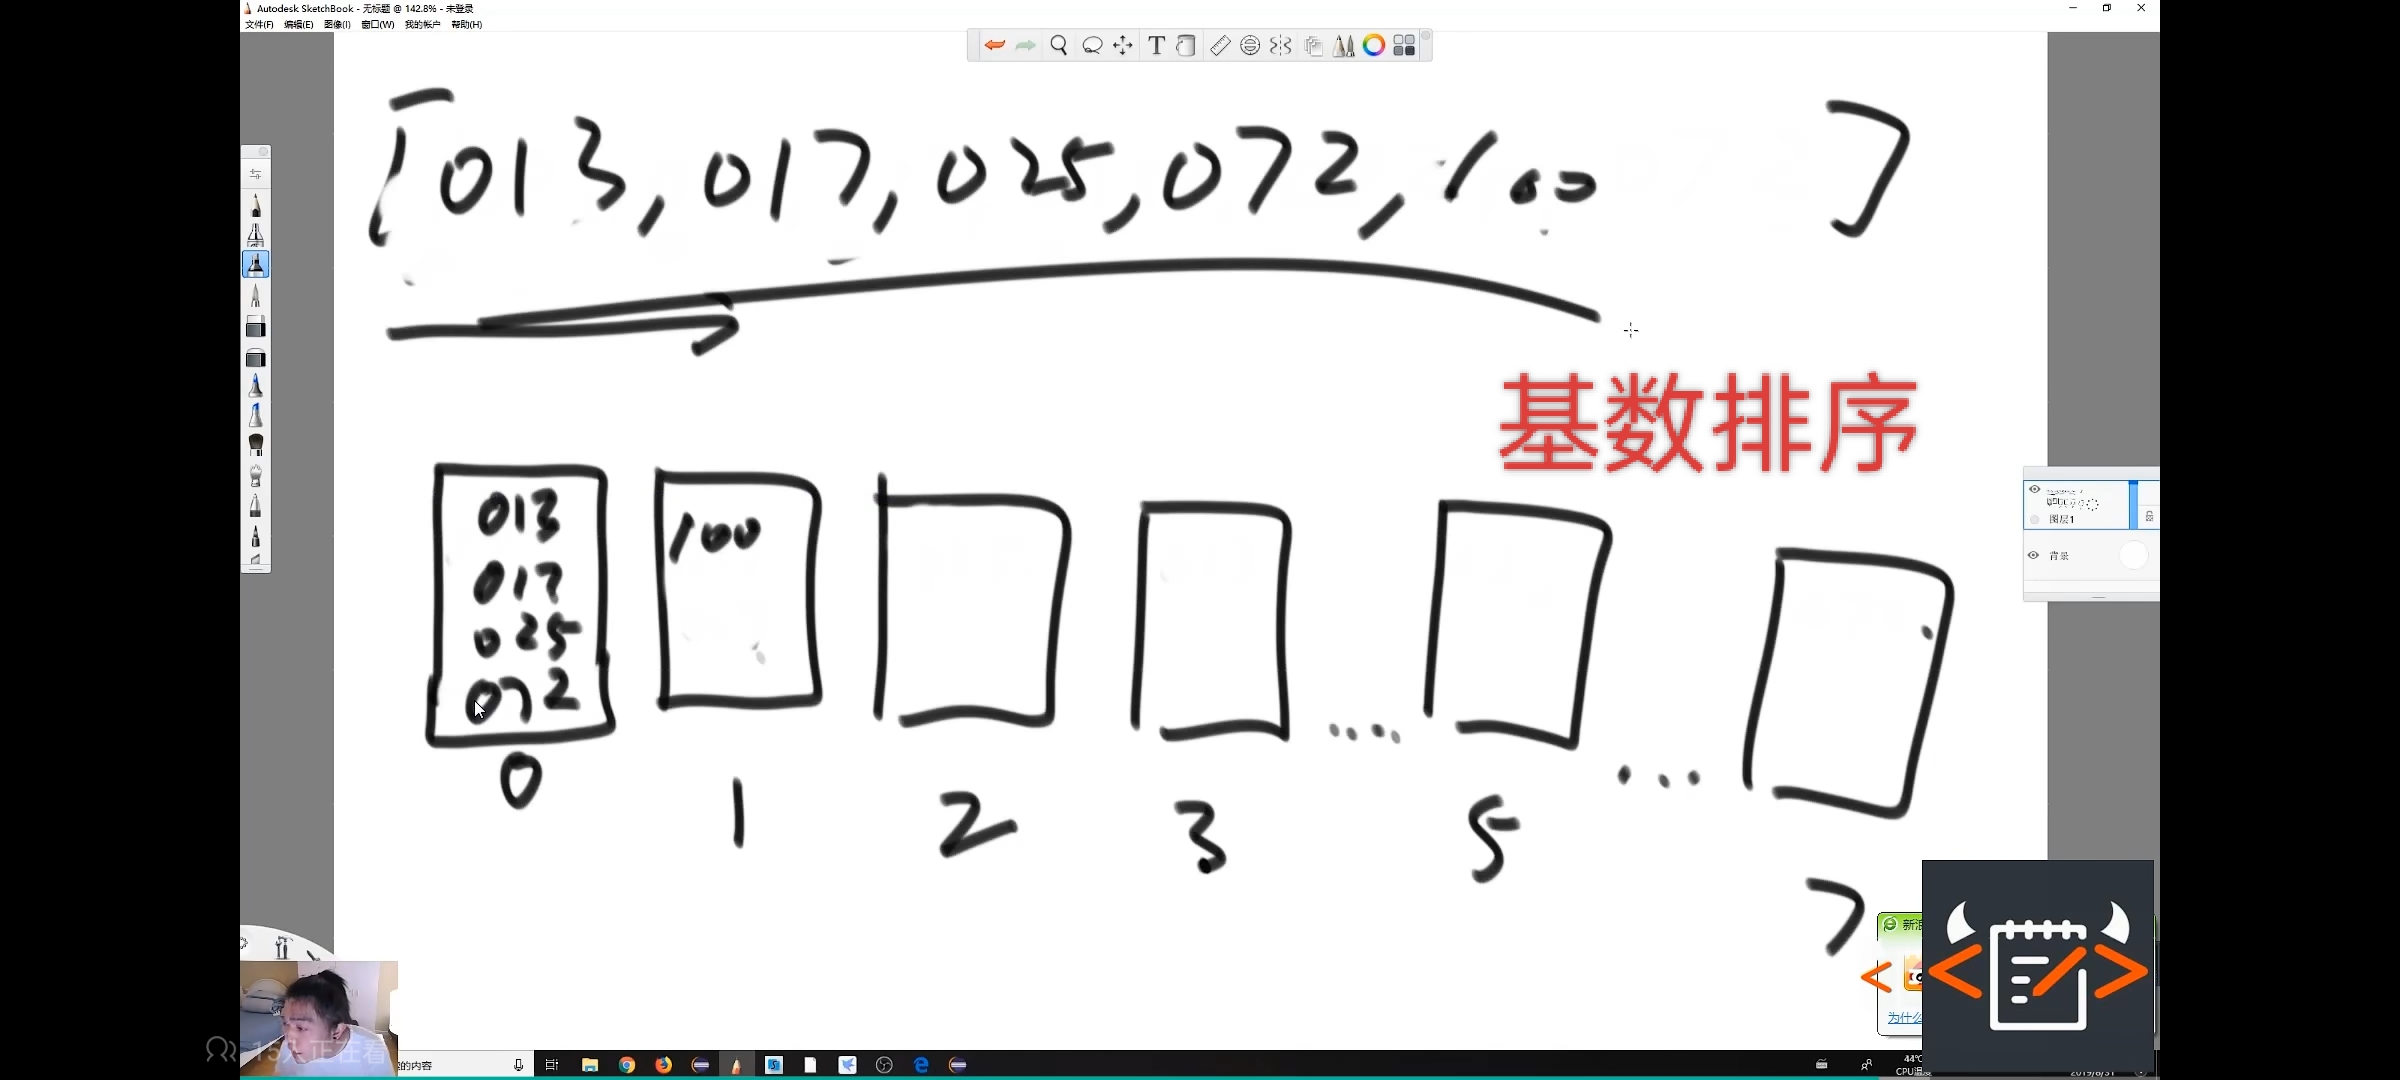 Autodesk SketchBook - 无标题 @ 142.8% - 未登录
文件(F) 编辑(E) 图像(I) 窗口(W) 我的帐户 帮助(H)
[013, 017, 025, 072, 100 ]
基数排序
013
017
025
072
100
0 1 2 3 5 7
图层1
背景
新浪
为什么
15人正在看
的内容
44℃
CPU温度
2019/8/31